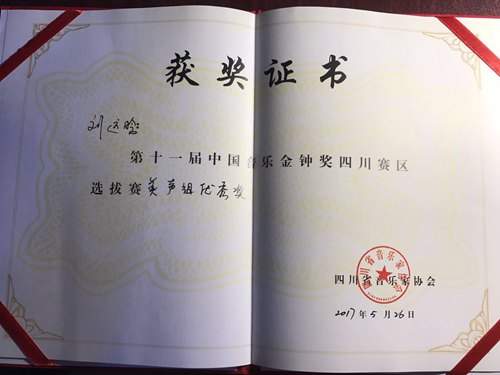 获奖证书
刘
第十一届中国音乐金钟奖四川赛区
选拔赛美声组优秀奖
四川省音乐家协会
四川省音乐家协会
2017年5月26日